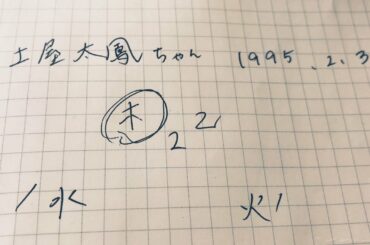 土屋太鳳ちゃん 1995.2.3
木 2 2
/水 火/